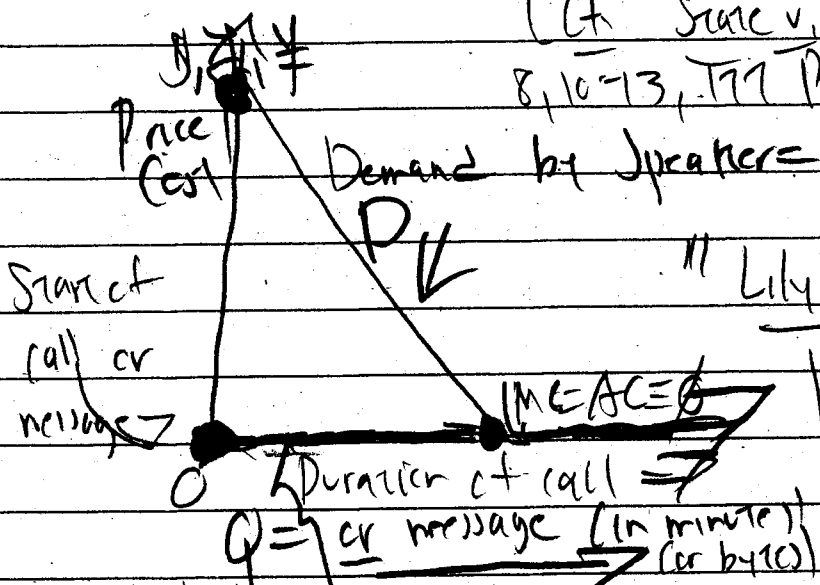 $, ¥
Price
Cost
Demand by Speaker =
D
"Lily
Start of
call or
message
MC = AC = 0
0
Duration of call =
Q = or message (in minute)
(or byte)